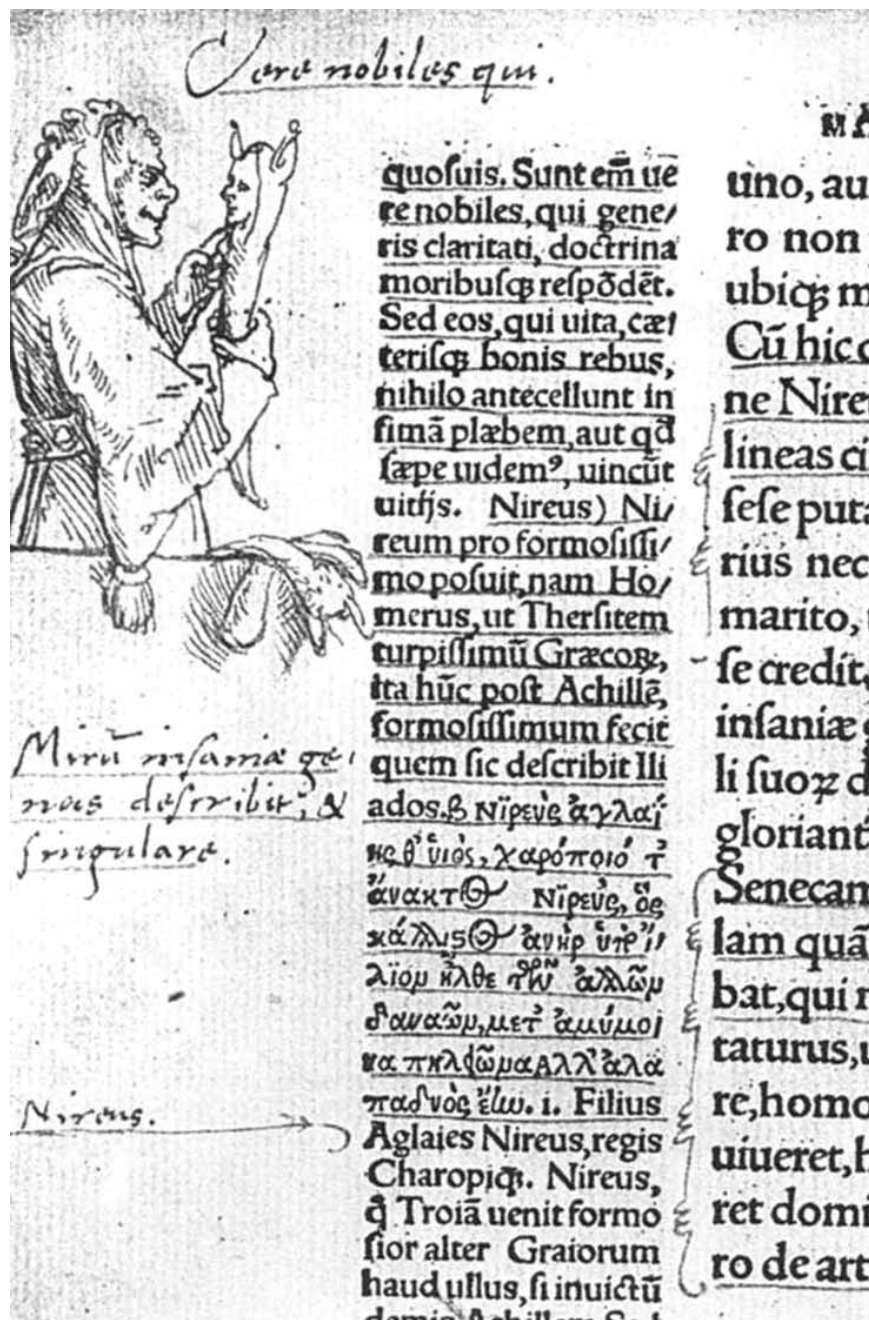 Vere nobiles qui.
quosuis. Sunt em̄ ue
re nobiles, qui gene/
ris claritati, doctrina
moribusqꝫ respōdēt.
Sed eos, qui uita, cæt
terisqꝫ bonis rebus,
nihilo antecellunt in
fimā plæbem, aut qđ
sæpe uidemꝰ, uincūt
uitijs. Nireus) Ni/
reum pro formosissi/
mo posuit, nam Ho/
merus, ut Thersitem
turpissimū Græcoꝝ,
ita hūc post Achillē,
formosissimum fecit
quem sic describit Ili
ados. β Νϊρεὺς ἀγλαΐ
ης θ᾽ ὑιὸς, χαρόποιό τ᾽
ἄνακτος Νϊρεὺς, ὃς
κάλλιστος ἀνὴρ ὑπ᾽ ἴ/
λϊομ ἦλθε τῶμ ἄλλωμ
δαναῶμ, μετ᾽ ἀμύμο
να πηλείωμα Αλλ᾽ ἀλα
παδνὸς ἔην. i. Filius
Aglaies Nireus, regis
Charopiqꝫ. Nireus,
ꝗ Troiā uenit formo
sior alter Graiorum
haud ullus, si inuictū
Mirū insaniæ ge,
nus describit, &
singulare.
Nireus.
MA
uno, au
ro non
ubiqꝫ m
Cū hic c
ne Nireu
lineas ci
sese puta
rius nec
marito,
se credit,
insaniæ g
li suoꝝ d
gloriant
Senecam
lam quā
bat, qui n
taturus, u
re, homo
uiueret, h
ret domi
ro de art